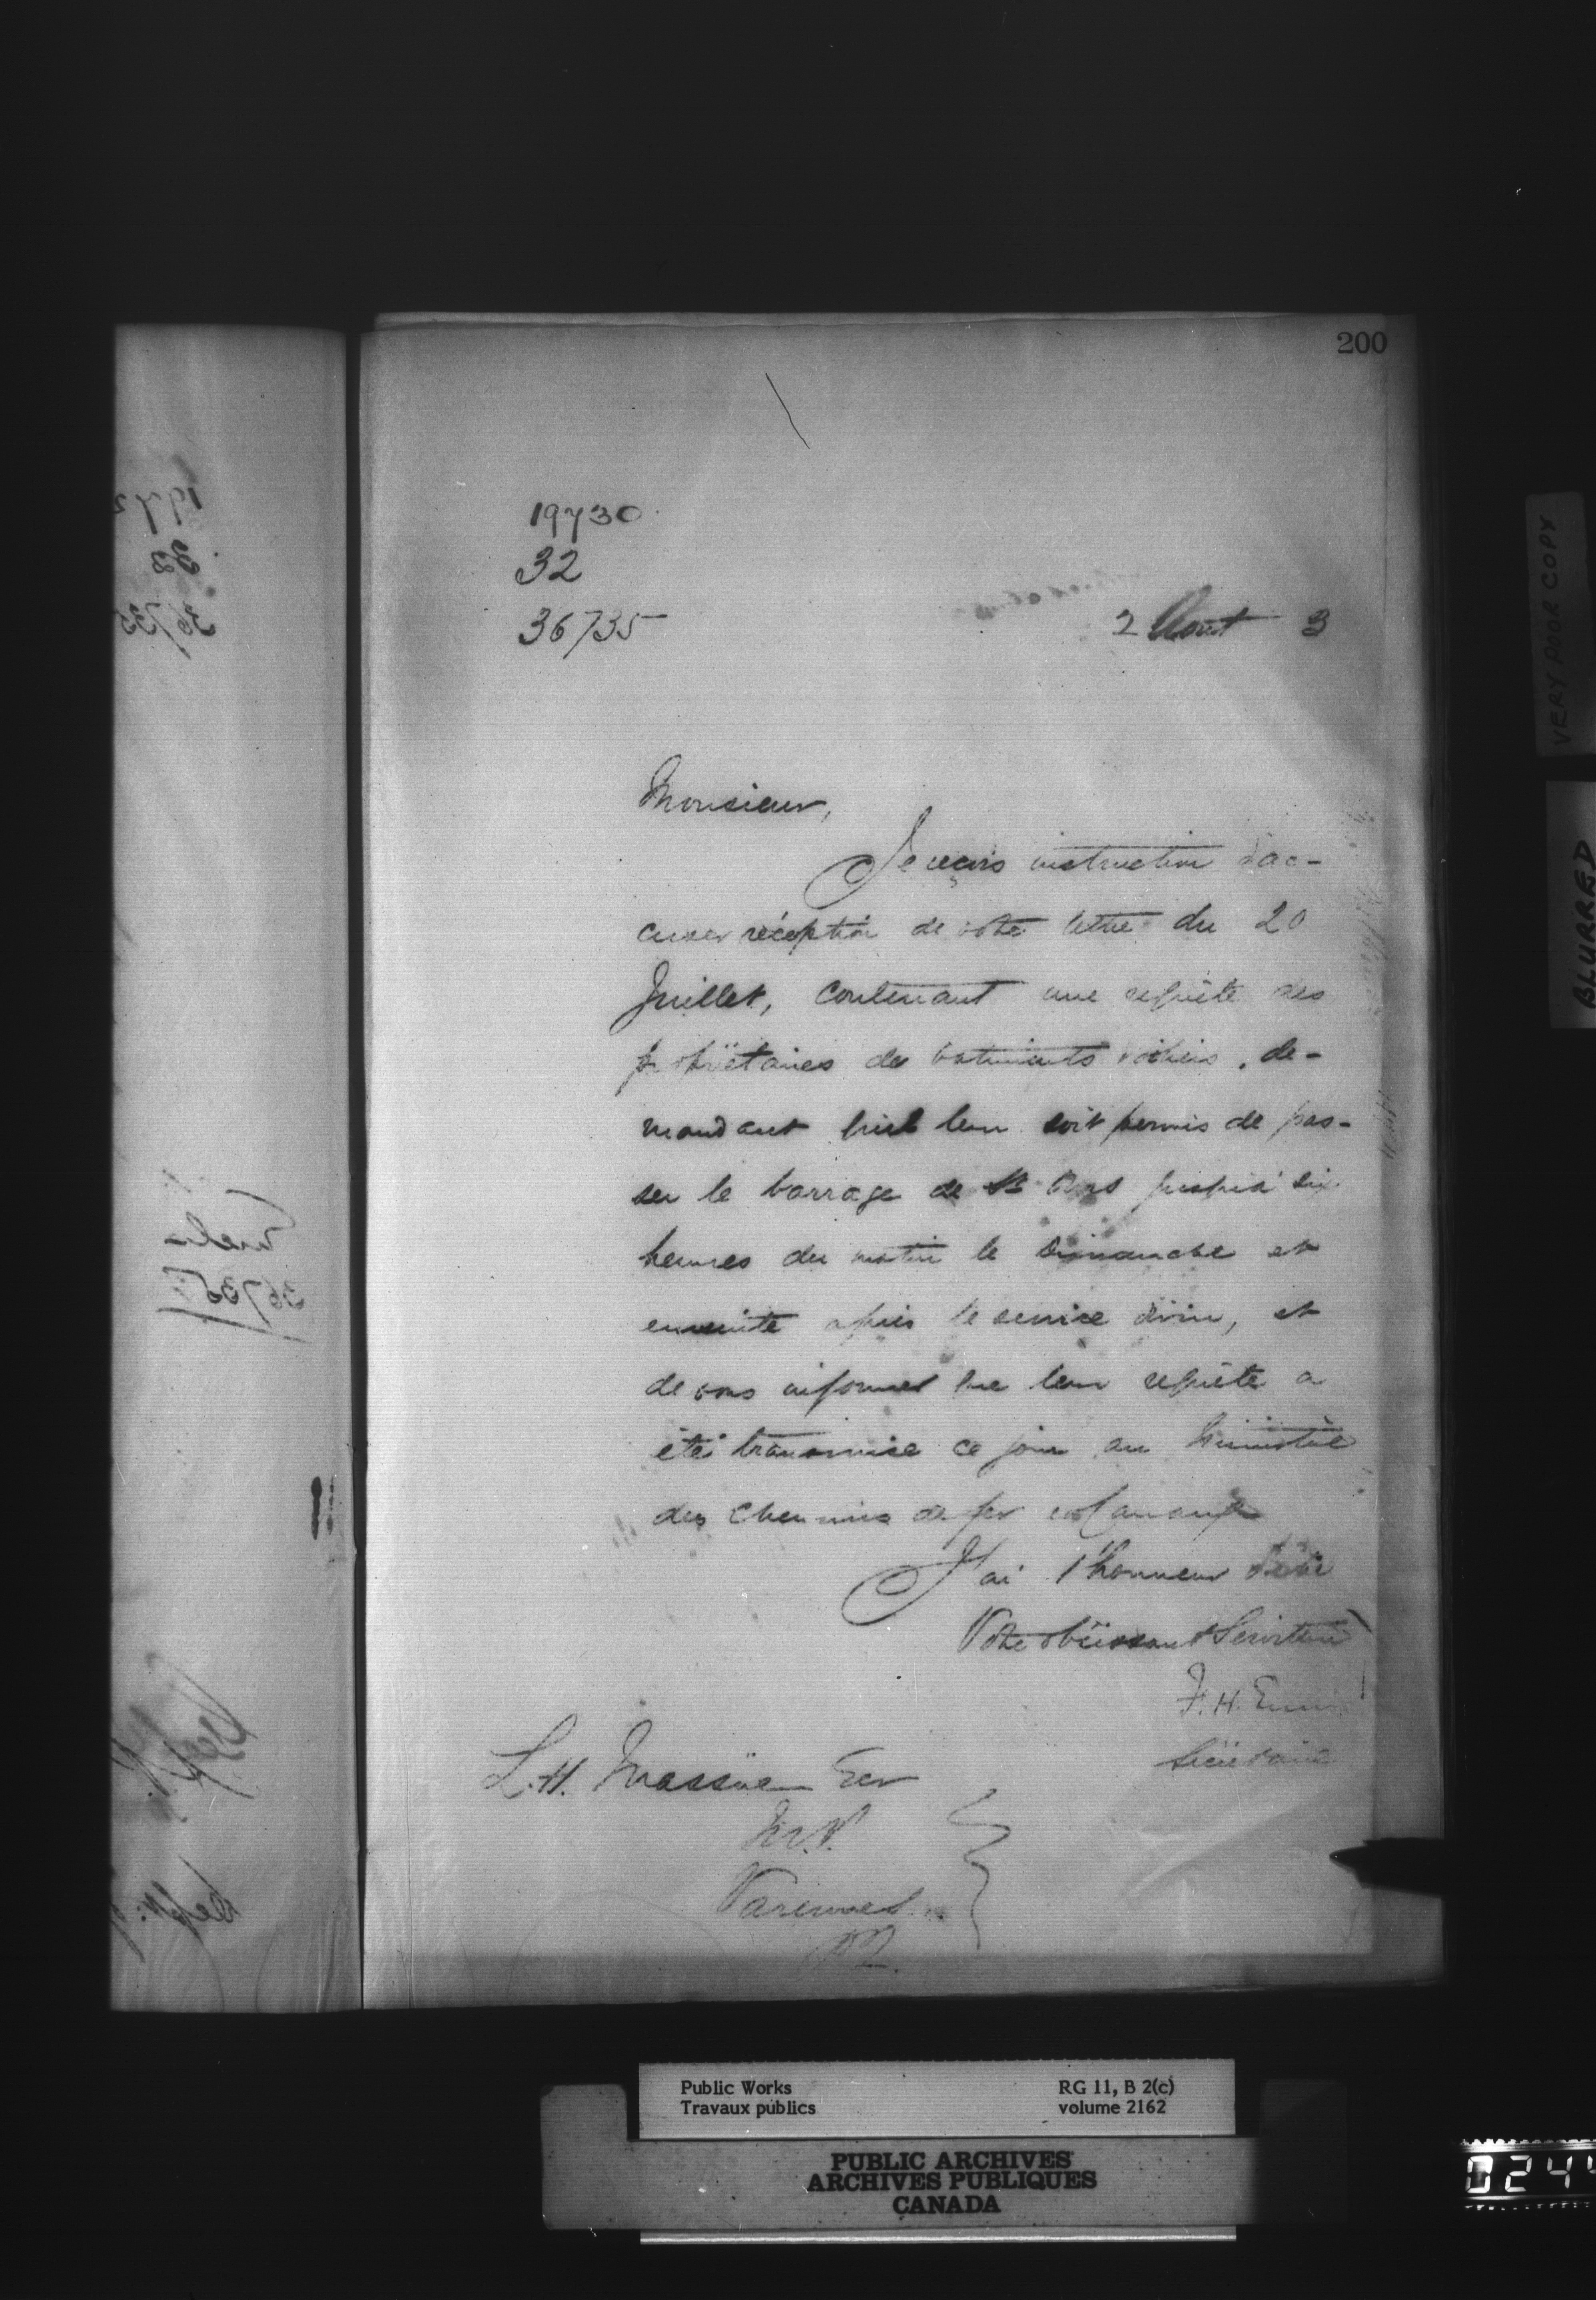 200
19730
32
36735
2 Aout 3
Monsieur,
Je reçois instruction d'ac-
cuser réception de votre lettre du 20
Juillet, contenant une requête des
propriétaires de batiments voiliers, de-
mandant qu'il leur soit permis de pas-
ser le barrage de St Ours jusqu'à six
heures du matin le Dimanche et
ensuite après le service divin, et
de vous informer que leur requête a
été transmise ce jour au Ministère
des Chemins de fer et Canaux
J'ai l'honneur d'être
Votre obéissant Serviteur
F. H. Ennis
Secrétaire
L. H. Massüe Ecr
M.P.
Varennes
PQ.
VERY POOR COPY
BLURRED
Public Works
Travaux publics
RG 11, B 2(c)
volume 2162
PUBLIC ARCHIVES
ARCHIVES PUBLIQUES
CANADA